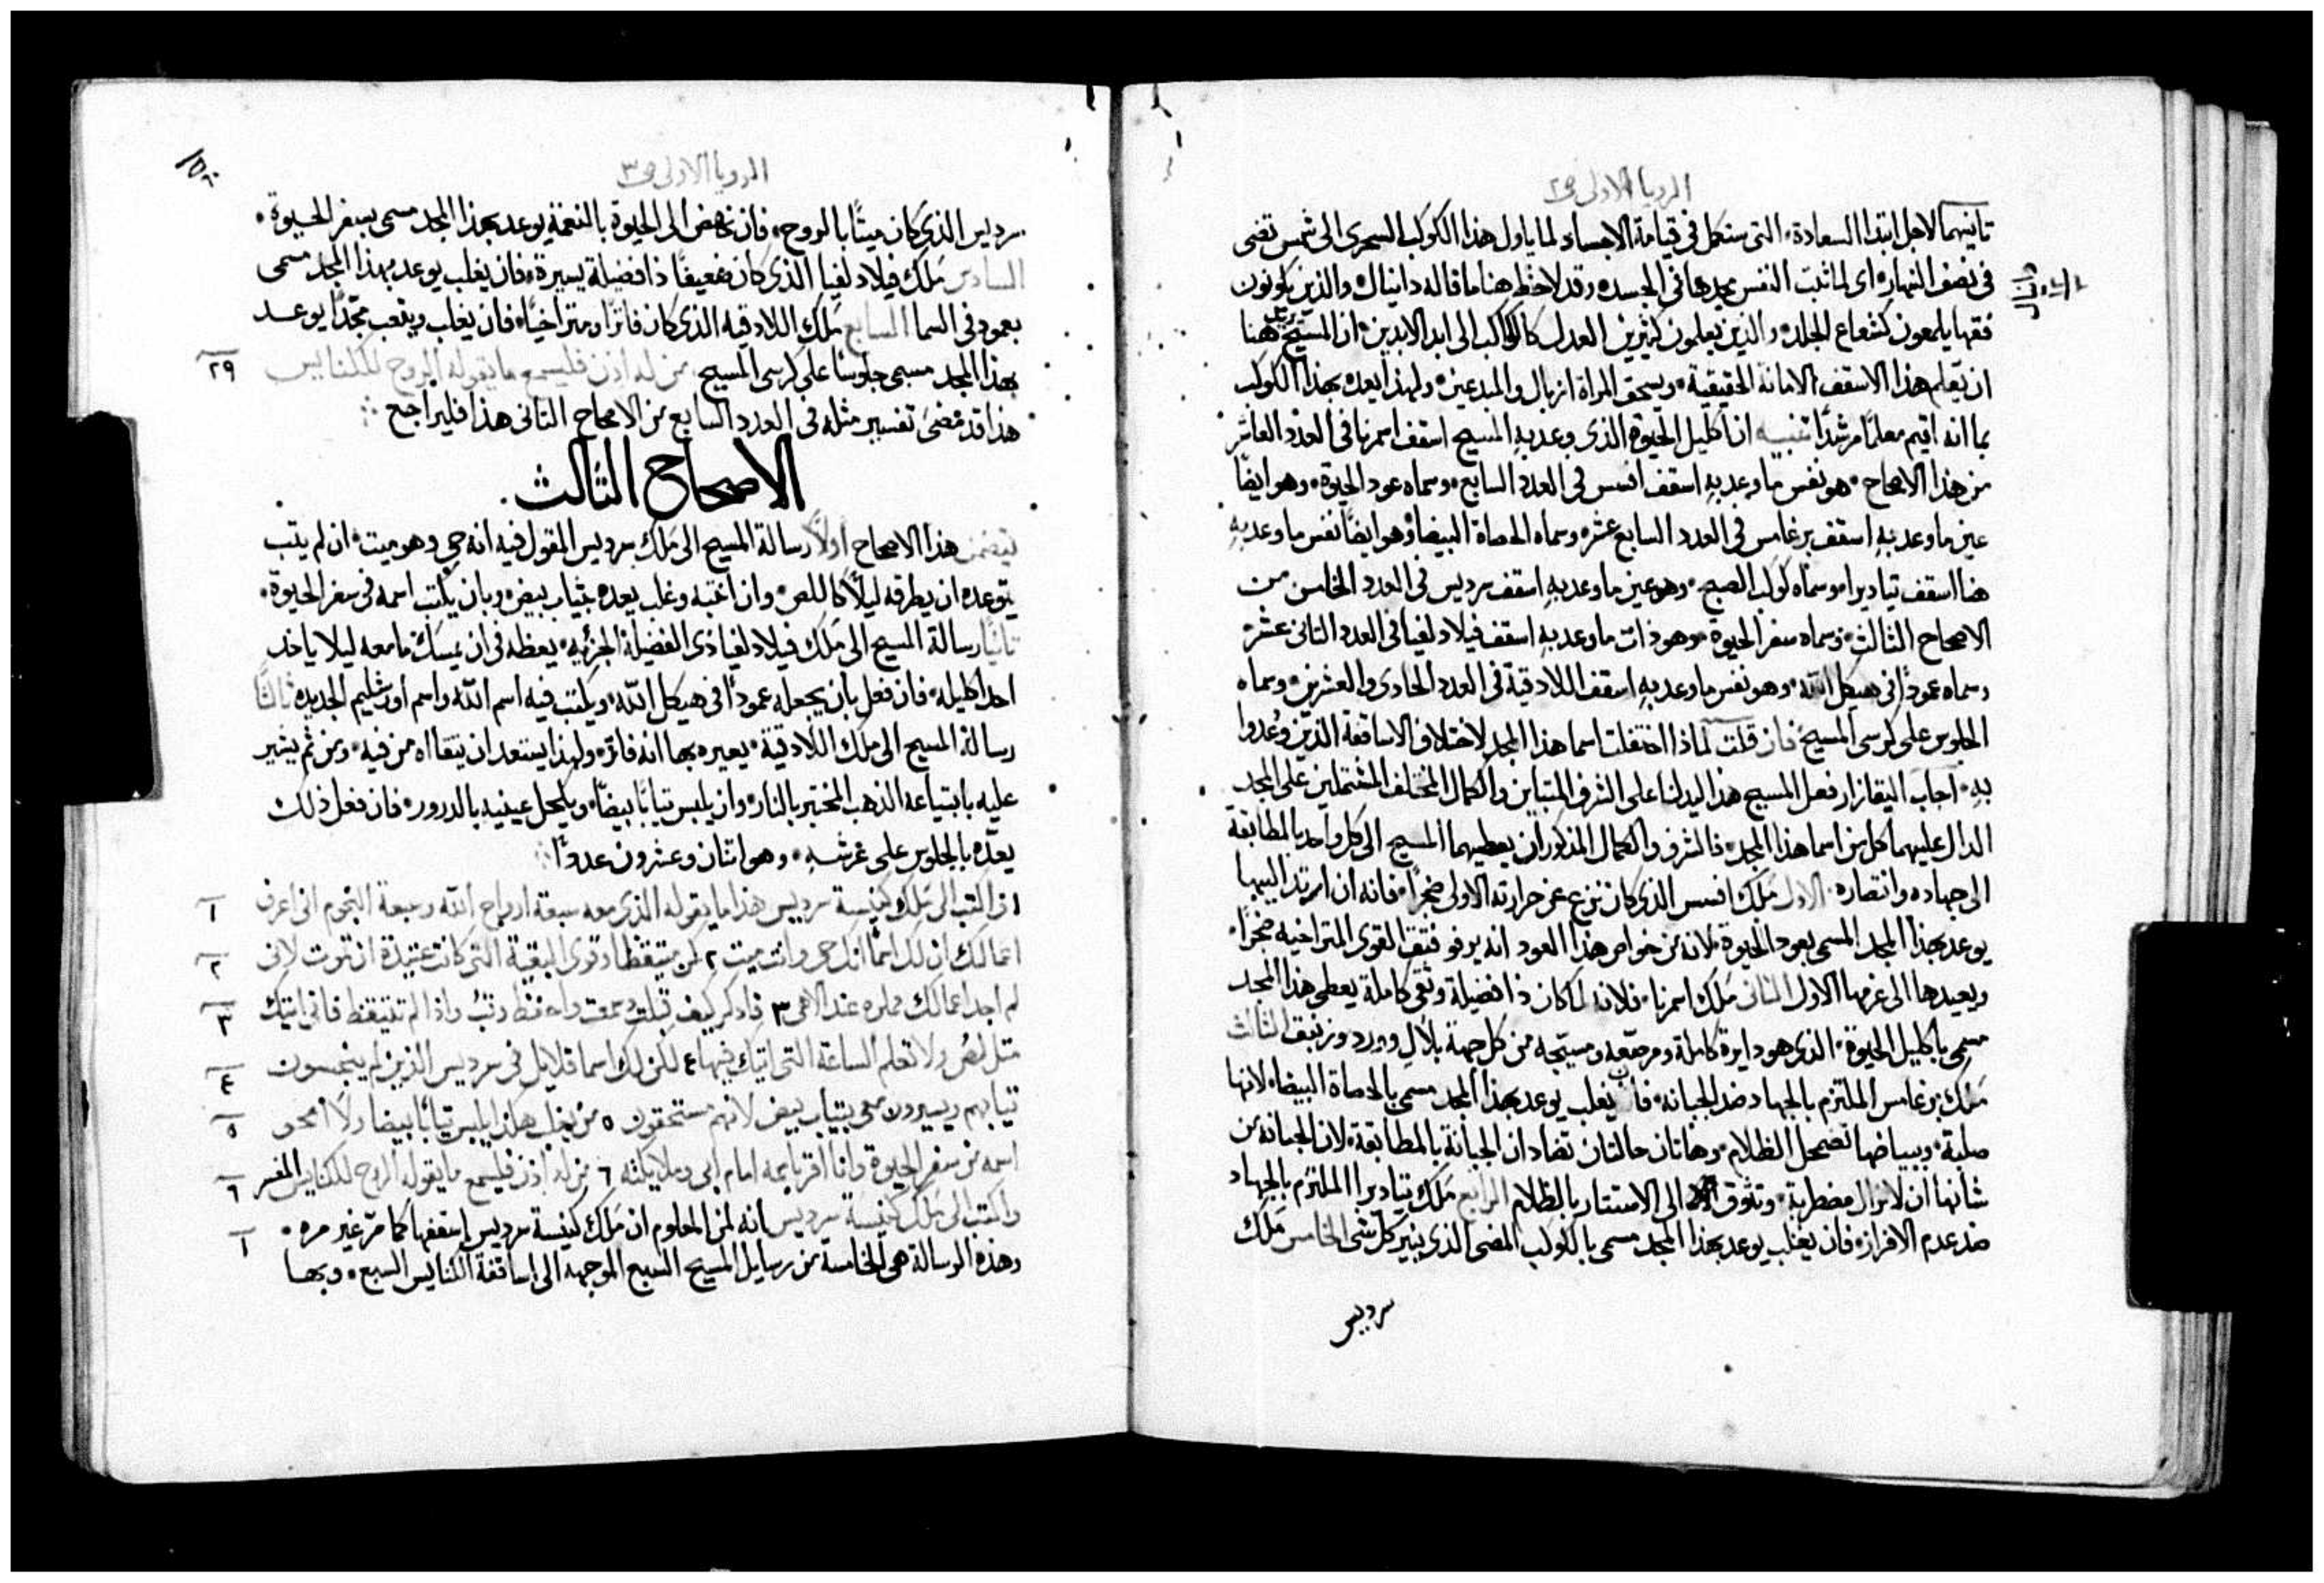 الرويا الاولى ص٢
تانيهما لاجل ابتدا السعادة، التي ستكمل في قيامة الاجساد لما ياول هذا الكوكب السحرى الى شمس تضى
في نصف النهار، اى لما تثبت النفس مجدها في الجسد، وقد لاحظ هنا ما قاله دانيال، والذين يكونون
فقها يلمعون كشعاع الجلد، والذين يعلمون كثيرين العدل كالكواكب الى ابد الابدين، ان المسيح يريد هنا
ان تعلم هذا الاسقف الامانة الحقيقية، ويسحق المراة ازبال والمبدعين، ولهذا يعده بهذا الكوكب
بما انه اقيم معلمًا مرشدًا تنبيه ان اكليل الحيوة الذى وعد به المسيح اسقف اسمرنا في العدد العاشر
من هذا الاصحاح، هو نفس ما وعد بهِ اسقف افسس في العدد السابع، وسماه عود الحيوة، وهو ايضًا
عين ما وعد بهِ اسقف برغامس في العدد السابع عشر، وسماه الحصاة البيضا، وهو ايضًا نفس ما وعد بهِ
هنا اسقف تياديرا، وسماه كوكب الصبح، وهو عين ما وعد بهِ اسقف سرديس في العدد الخامس من
الاصحاح الثالث، وسماه سفر الحيوة، وهو ذات ما وعد بهِ اسقف فيلادلفيا في العدد الثاني عشر
وسماه عمودًا في هيكل الله، وهو نفس ما وعد بهِ اسقف اللادقية في العدد الحادى والعشرين، وسماه
الجلوس على كرسي المسيح فان قلت لماذا اختلفت اسما هذا المجد لاختلاف الاساقفة الذين وُعدوا
بهِ، اجاب اليقازار فعل المسيح هذا ليدلنا على الشرف المتباين والكمال المختلف المشتملين على المجد
الدال عليهما كل من اسما هذا المجد، فالشرف والكمال المذكوران يعطيهما المسيح الى كل واحد بالمطابقة
الى جهاده وانتصاره، الاول ملاك افسس الذى كان نزع عن حرارته الاولى ضجرًا، فانه ان ارتد اليها
يوعد بهذا المجد المسمى بعود الحيوة، لانه من خواص هذا العود انه يرفو فتق القوى المتراخيه ضجرًا،
ويعيدها الى عزمها الاول الثاني ملاك اسمرنا، فلانه لما كان ذا فضيلة وتقى كاملة يعطى هذا المجد
مسمى باكليل الحيوة، الذى هو دايرة كاملة ومرصعه ومسيّجه من كل جهة بلالٍ وورد وزنبق الثالث
ملاك برغامس الملتزم بالجهاد ضد الجبانه، فان يغلب يوعد بهذا المجد مسمى بالحصاة البيضا، لانها
صلبة، وببياضها تضمحل الظلام، وهاتان حالتان تضادان الجبانة بالمطابقة، لان الجبانه من
شانها ان لاتزال مضطربة، وتتوق الى الاستتار بالظلام الرابع ملاك تياديرا الملتزم بالجهاد
ضد عدم الافراز، فان يغلب يوعد بهذا المجد مسمى بالكوكب المضى الذى ينير كل شى الخامس ملاك
سرديس
الرويا الاولى ص٣
سرديس الذي كان ميتًا بالروح، فان نهض الى الحيوة بالنعمة يوعد بهذا المجد مسمى بسفر الحيوة،
السادس ملاك فيلادلفيا الذى كان ضعيفًا ذا فضيلة يسيرة، فان يغلب يوعد بهذا المجد مسمى
بعمود في السما السابع ملاك اللادقيه الذى كان فاترًا ومتراخيًا، فان يغلب ويتعب مجدًا يوعد
بهذا المجد مسمى جلوسًا على كرسى المسيح، من له اذن فليسمع ما يقوله الروح للكنايس ٢٩
هذا قد مضى تفسير مثله في العدد السابع من الاصحاح الثاني هذا فليراجع
الاصحاح الثالث
يتضمن هذا الاصحاح اولًا رسالة المسيح الى ملاك سرديس المقول فيه انه حي وهو ميت، ان لم يتب
يتوعده ان يطرقه ليلًا كاللص، وان انتبه وغلب يعده بثياب بيض، وبان يكتب اسمه في سفر الحيوة،
ثانيًا رسالة المسيح الى ملاك فيلادلفيا ذى الفضيلة الجزئيه، يعظه في ان يمسك ما معه ليلا ياخد
احد اكليله، فان فعل بان يجعله عمودًا في هيكل الله، ويكتب فيه اسم الله واسم اورشليم الجديده ثالثًا
رسالة المسيح الى ملاك اللادقية، يعيره بها انه فاتر، ولهذا يستعد ان يتقااه من فيه، ومن ثم يشير
عليه بابتياعه الذهب المختبر بالنار، وان يلبس ثيابًا بيضًا، ويكحل عينيه بالدرور، فان فعل ذلك
يعدّه بالجلوس على عرشهِ، وهو اثنان وعشرون عددًا
١ واكتب الى ملاك كنيسة سرديس هذا ما يقوله الذى معه سبعة ارواح الله وسبعة النجوم انى اعرف ١
اعمالك ان لك اسمًا انك حى وانت ميت ٢ كن متيقظا وقوى البقية التى كانت عتيدة ان تموت لانى ٢
لم اجد اعمالك مملوه عند الاهى ٣ فاذكر كيف قبلت وسمعت واحفظ وتبُ واذا لم تتيقظ فانى اتيك ٣
مثل لص ولا تعلم الساعة التى اتيك فيها ٤ لكن لك اسما قلايل فى سرديس الذين لم ينجسون ٤
ثيابهم ويسيرون معى بثياب بيض لانهم مستحقون ٥ من يغلب هكذا يلبس ثيابًا بيضا ولا امحو ٥
اسمه من سفر الحيوة وانا اقر باسمه امام ابى وملايكته ٦ من له اذن فليسمع ما يقوله الروح للكنايس المفسر ٦
واكتب الى ملاك كنيسة سرديس انه لمن المعلوم ان ملاك كنيسة سرديس اسقفها كما مرّ غير مره، ١
وهذه الرسالة هي الخامسة من رسايل المسيح السبع الموجهه الى اساقفة الكنايس السبع، وبها